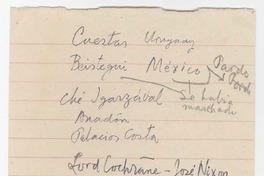 Cuestas Uruguay
Beistegui México
Pardo
Pardi
Ché Igarzábal
Se había
marchado
Anadón
Palacios Costa
Lord Cochrane - José Nixon